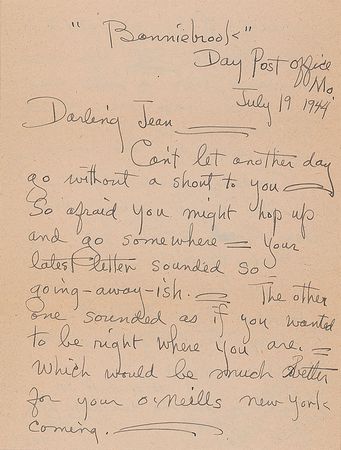 " Bonniebrook "
Day Post office
Mo.
July 19 1944
Darling Jean
Can't let another day
go without a shout to you
So afraid you might hop up
and go somewhere = your
latest letter sounded so
going-away-ish. = The other
one sounded as if you wanted
to be right where you are. =
which would be much Better
for your O'neills new York
coming.